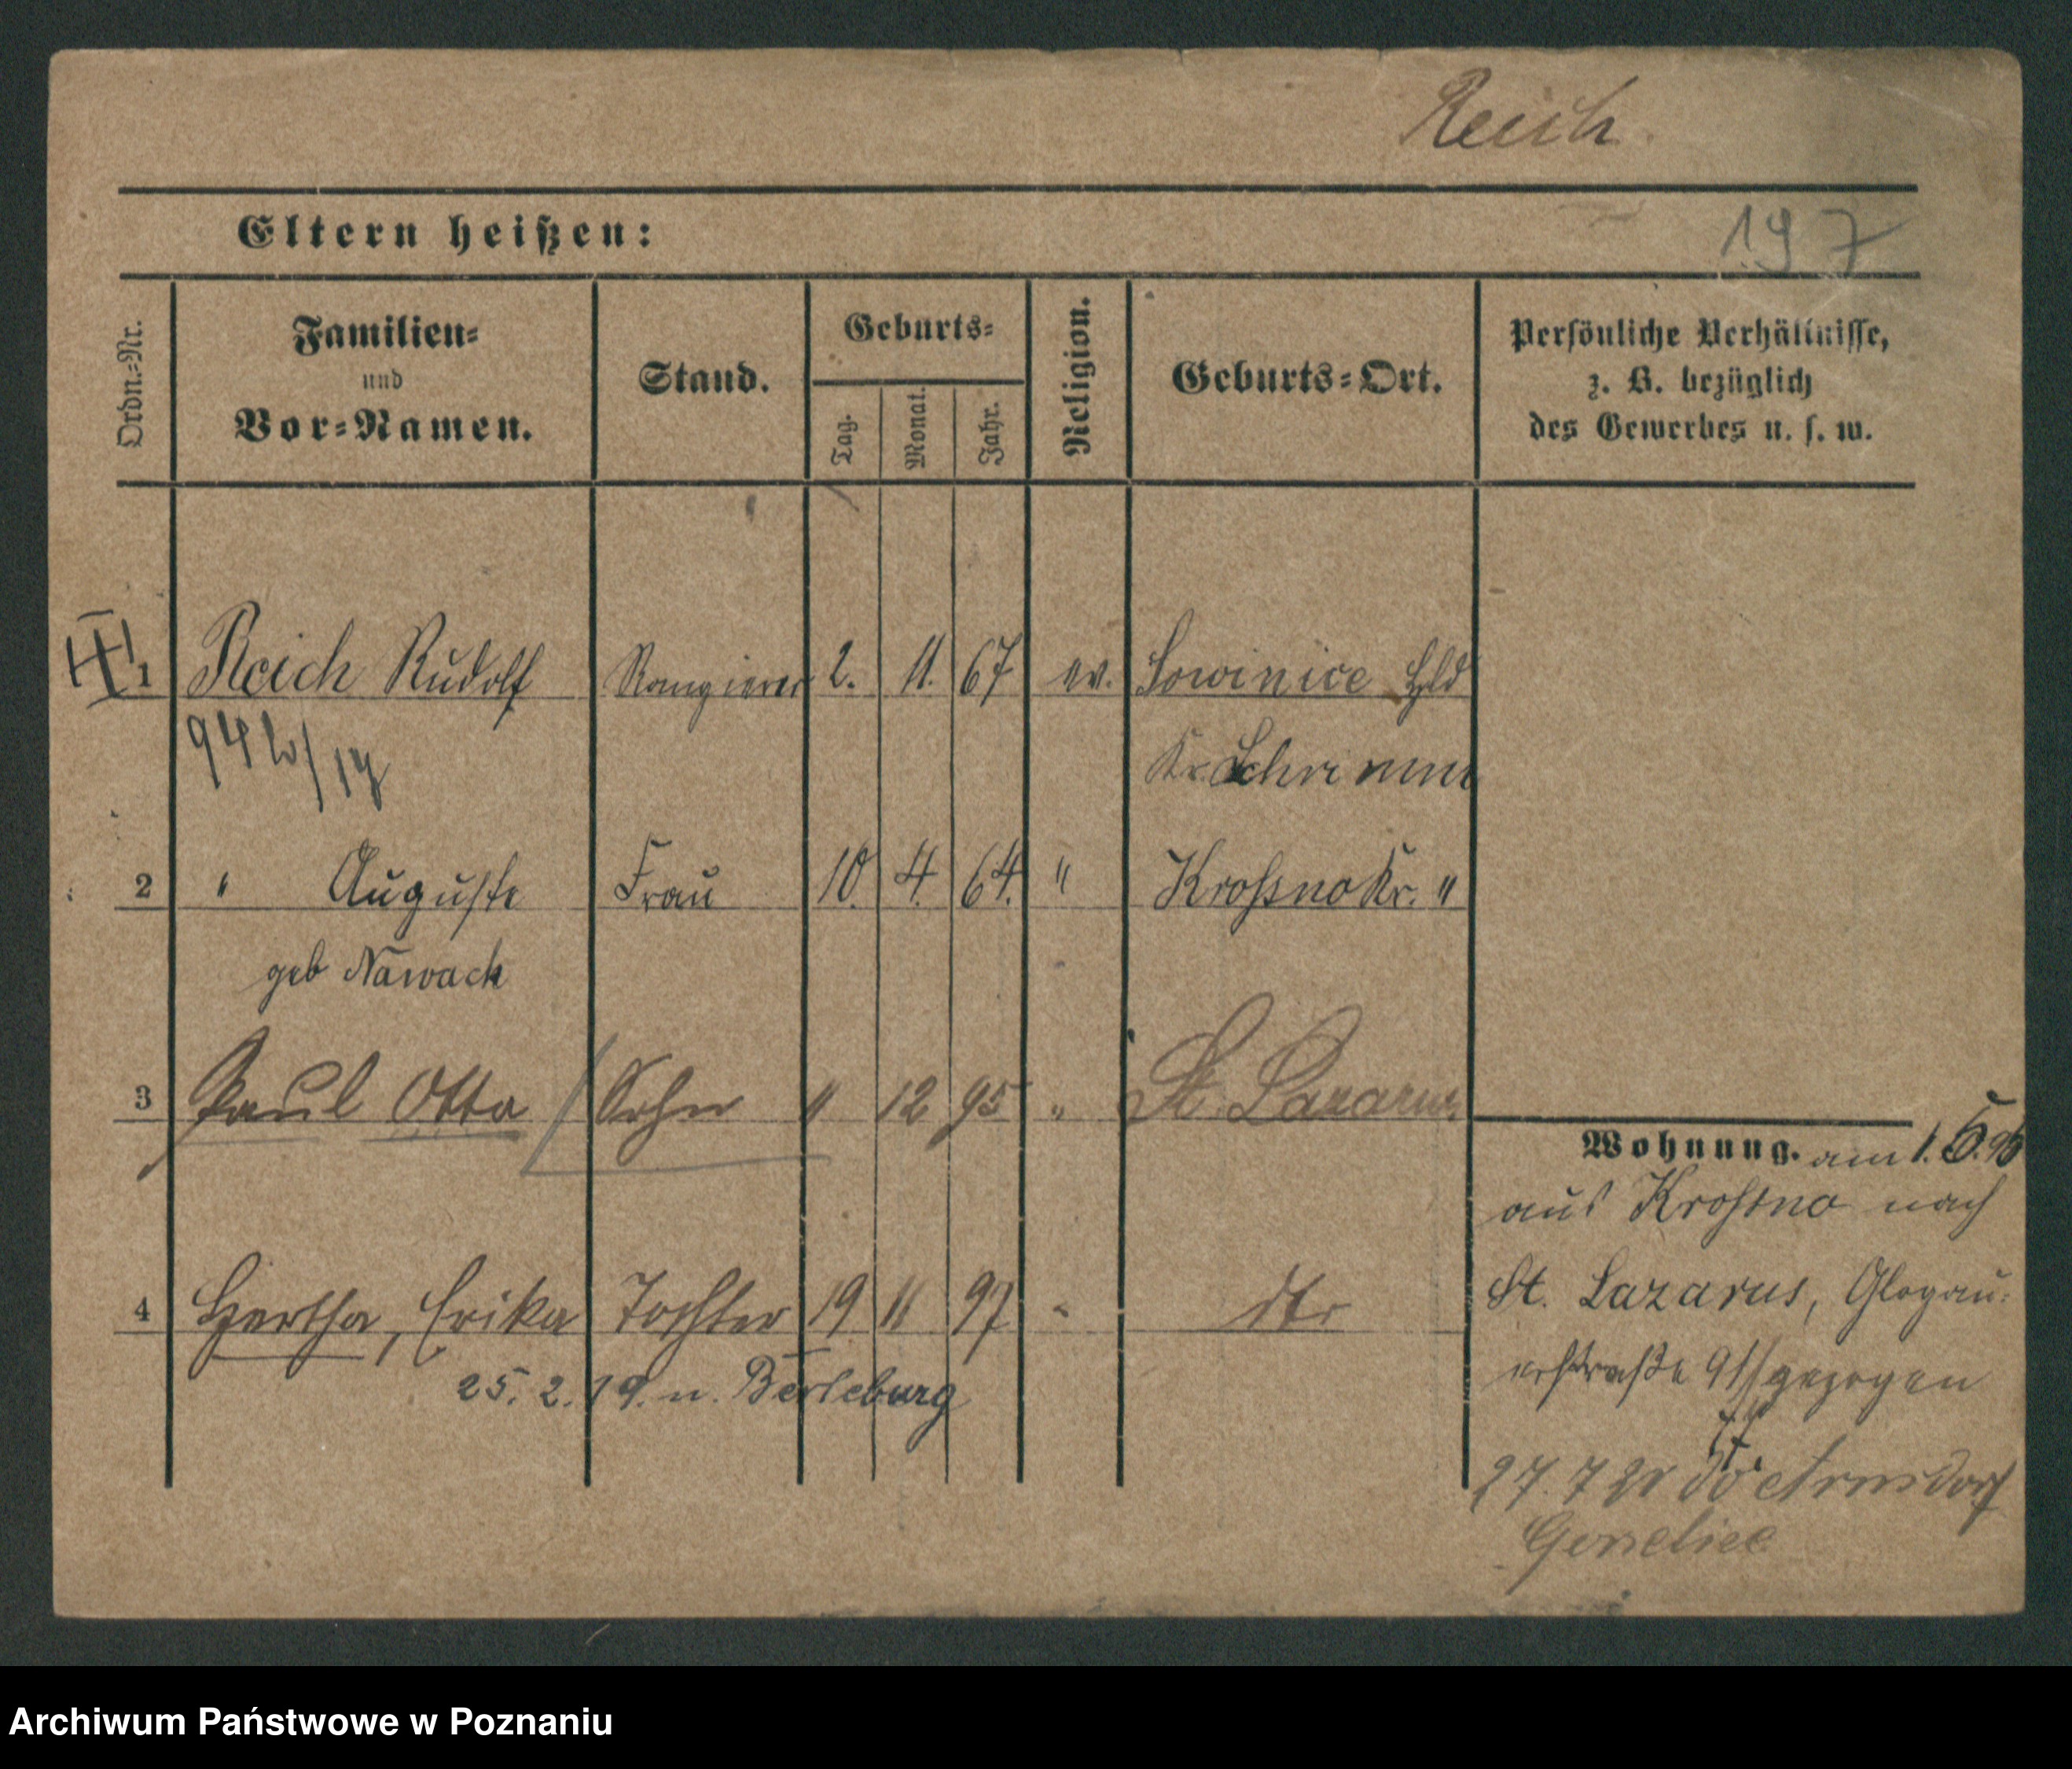 Reich.
Eltern heißen:
197
Ordn.-Nr.
Familien-
und
Vor-Namen.
Stand.
Geburts-
Tag.
Monat.
Jahr.
Religion.
Geburts-Ort.
Persönliche Verhältnisse,
z. B. bezüglich
des Gewerbes u. s. w.
1 Reich Rudolf Rangierer 2. 11. 67 ev. Sowinice Hld
Kr. Schrimm
2 " Auguste Frau 10. 4. 64. " Krossno Kr. "
geb Nawack
3 Paul Otto Sohn 11 12 95 " St. Lazarus
4 Hertha, Erika Tochter 19 11 97 " dto
25. 2. 19. n. Berleburg
Wohnung. am 1. 5. 96
aus Krossno nach
St. Lazarus, Glogau-
erstraße 91 gezogen
27. 7 Arnsdorf
Archiwum Państwowe w Poznaniu